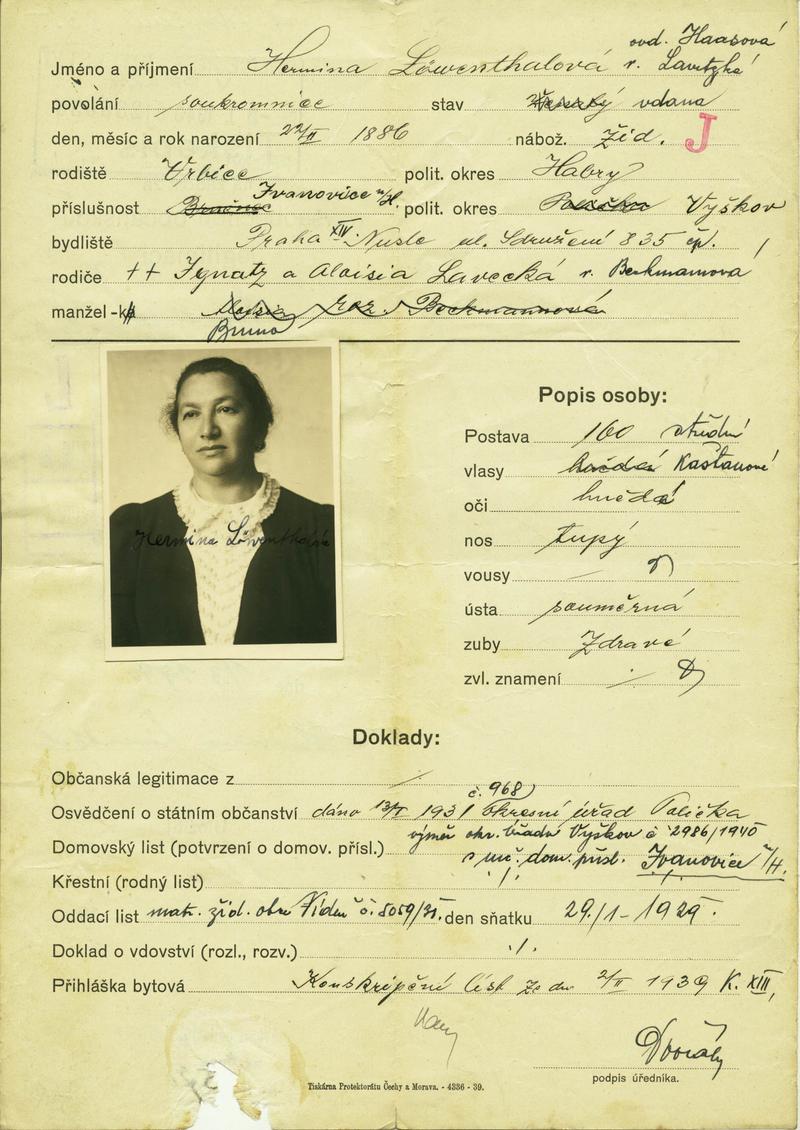 ovd. Haasová
Jméno a příjmení Hermina Löwenthalová r. Lavetzká
povolání soukromnice stav vdana
den, měsíc a rok narození 22/II 1886 nábož. žid. J
rodiště Vrbice polit. okres Habry
Ivanovice n/H.
příslušnost polit. okres Vyškov
bydliště Praha XIV. Nusle ul. Sdružení 835 čp.
rodiče ++ Ignatz a Aloisia Lavecká r. Beckmannová
manžel -ka Aloisia roz. Beckmannová
Bruno
Hermina Löwenthalová
Popis osoby:
Postava 160 střední
vlasy hnědá Kaštanové
oči hnědá
nos tupý
vousy
ústa souměrná
zuby Zdravé
zvl. znamení
Doklady:
Občanská legitimace z
č. 968
Osvědčení o státním občanství dáno 13/I 1931 Okresní úřad Polička
výměr okr. úřadu Vyškov č 2986/1940
Domovský list (potvrzení o domov. přísl.) s uč. dom. přísl. Ivanovice n/H.
Křestní (rodný list)
Oddací list matr. žid. obce Vídeň č. 5059/31. den sňatku 29./1-1929.
Doklad o vdovství (rozl., rozv.) ./.
Přihláška bytová Konskripční list ze dne 2/II 1939 K. XIII,
Dvořák
podpis úředníka.
Tiskárna Protektorátu Čechy a Morava. - 4336 - 39.